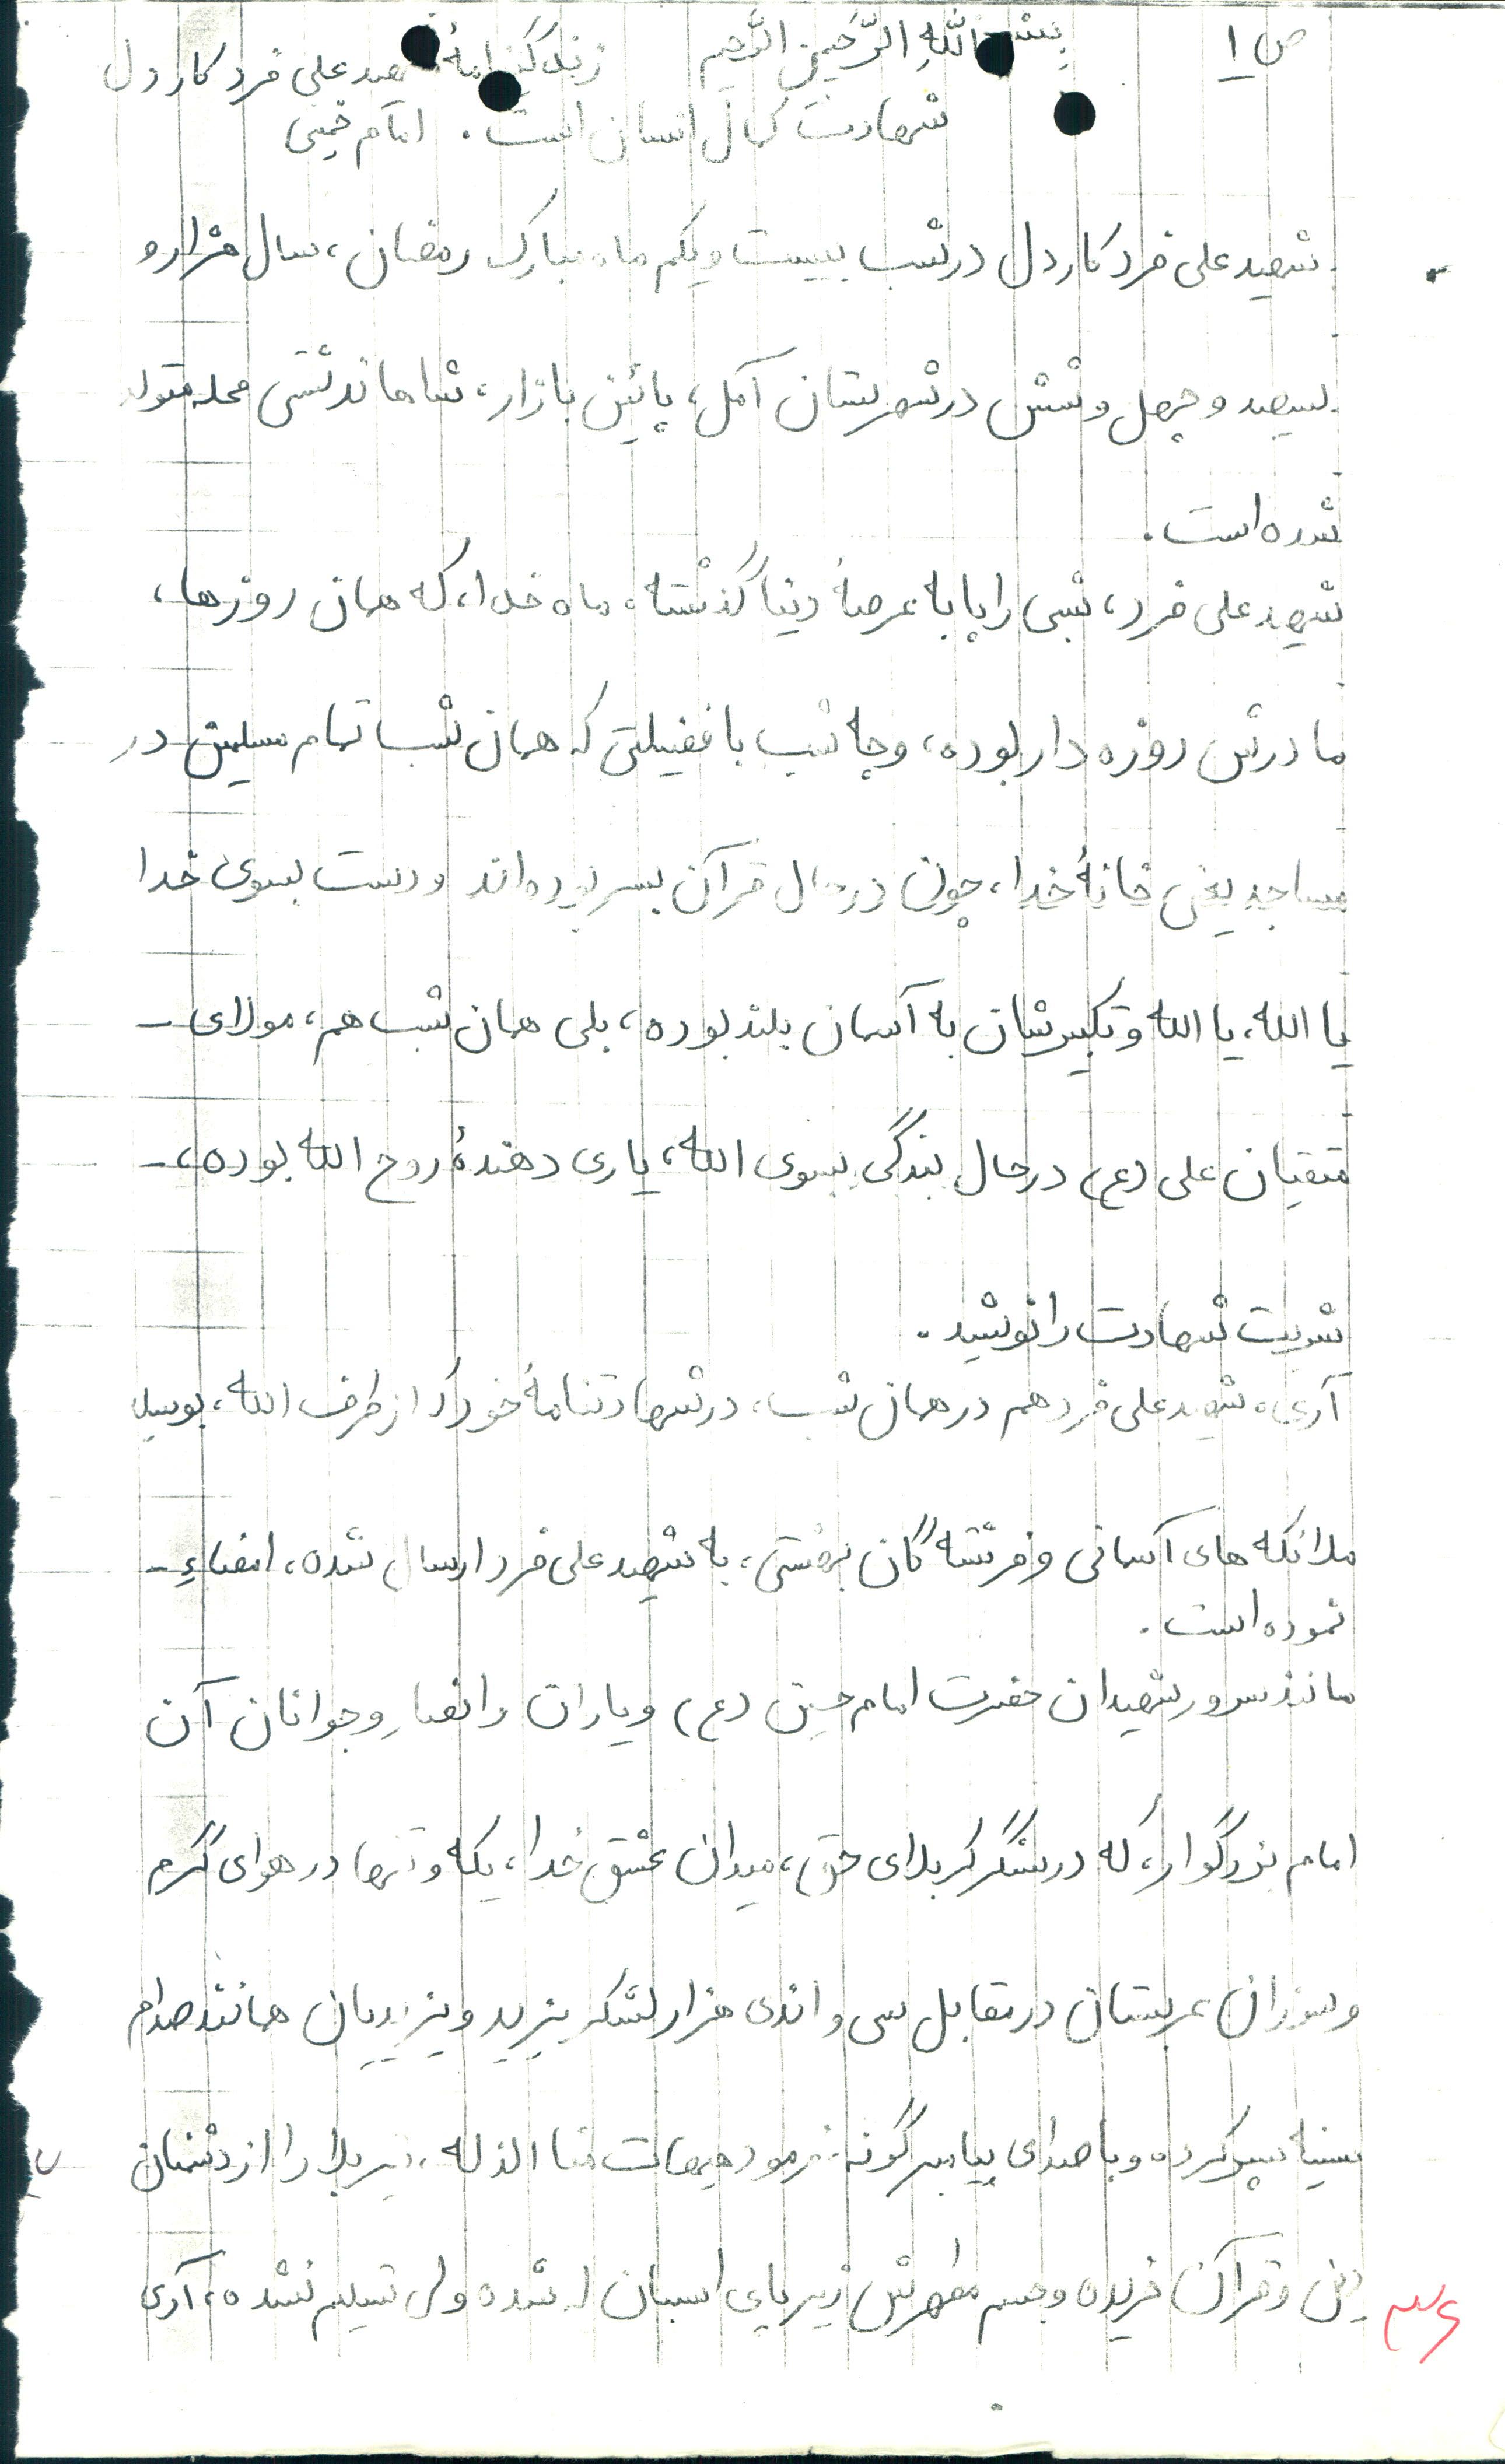 ص ۱
بسم اللهِ الرَّحمنِ الرَّحیم
زندگینامهٔ شهید علی فرد کاردل
شهادت کمال انسان است. امام خمینی
شهید علی فرد کاردل در شب بیست و یکم ماه مبارک رمضان، سال هزار و
سیصد و چهل و شش در شهرستان آمل، پائین بازار، شاهاندشتی محله متولد
شده است.
شهید علی فرد، شبی را پا به عرصهٔ دنیا گذشته، ماه خدا، که همان روزها،
مادرش روزه دار بوده، وچه شب با فضیلتی که همان شب تمام مسلمین در
مساجد یعنی خانهٔ خدا، چون در حال قرآن بسر بوده‌اند و دست بسوی خدا
یا الله، یا الله و تکبیرشان به آسمان بلند بوده، بلی همان شب هم، مولای ـ
متقیان علی (ع) در حال بندگی بسوی الله، یاری دهندهٔ روح الله بوده، ـ
شربت شهادت را نوشید.
آری، شهید علی فرد هم در همان شب، در شهادتنامهٔ خود که از طرف الله، بوسیله
ملائکه های آسمانی و فرشته گان بهشتی، به شهید علی فرد ارسال شده، امضاءِ ـ
نموده است.
مانند سرور شهیدان حضرت امام حسین (ع) و یاران و انصار و جوانان آن
امام بزرگوار، که در سنگر کربلای حق، میدان عشق خدا، یکه و تنها در هوای گرم
و سوزان عربستان در مقابل سی و اندی هزار لشکر یزید و یزیدیان همانند صدام
سینه سپر کرده و با صدای پیامبر گونه فرمود هیهات منا الذله، تیر بلا را از دشمنان
دین و قرآن خریده و جسم مطهرش زیر پای اسبان له شده ولی تسلیم نشده، آری